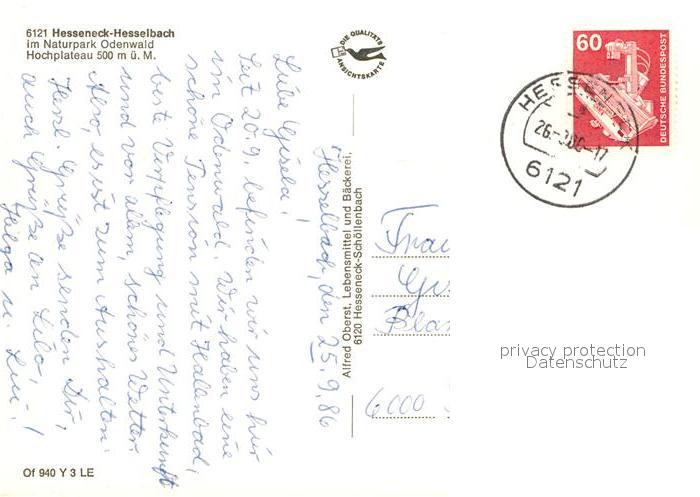 6121 Hesseneck-Hesselbach
im Naturpark Odenwald
Hochplateau 500 m ü. M.
DIE QUALITÄTS
ANSICHTSKARTE
60
DEUTSCHE BUNDESPOST
HESSEN
26.-
-17
6121
Hesselbach, den 25.9.86
Liebe Gisela!
Seit 20.9. befinden wir uns hier
im Odenwald. Wir haben eine
schöne Pension mit Hallenbad,
best. Verpflegung und Unterkunft
und vor allem, schönes Wetter.
Also, es ist zum Aushalten.
Herzl. Grüße senden Dir,
auch Grüße an Lilo!
Helga u.
Alfred Oberst, Lebensmittel und Bäckerei,
6120 Hesseneck-Schöllenbach
Frau
Gis
6000
privacy protection
Datenschutz
Of 940 Y 3 LE